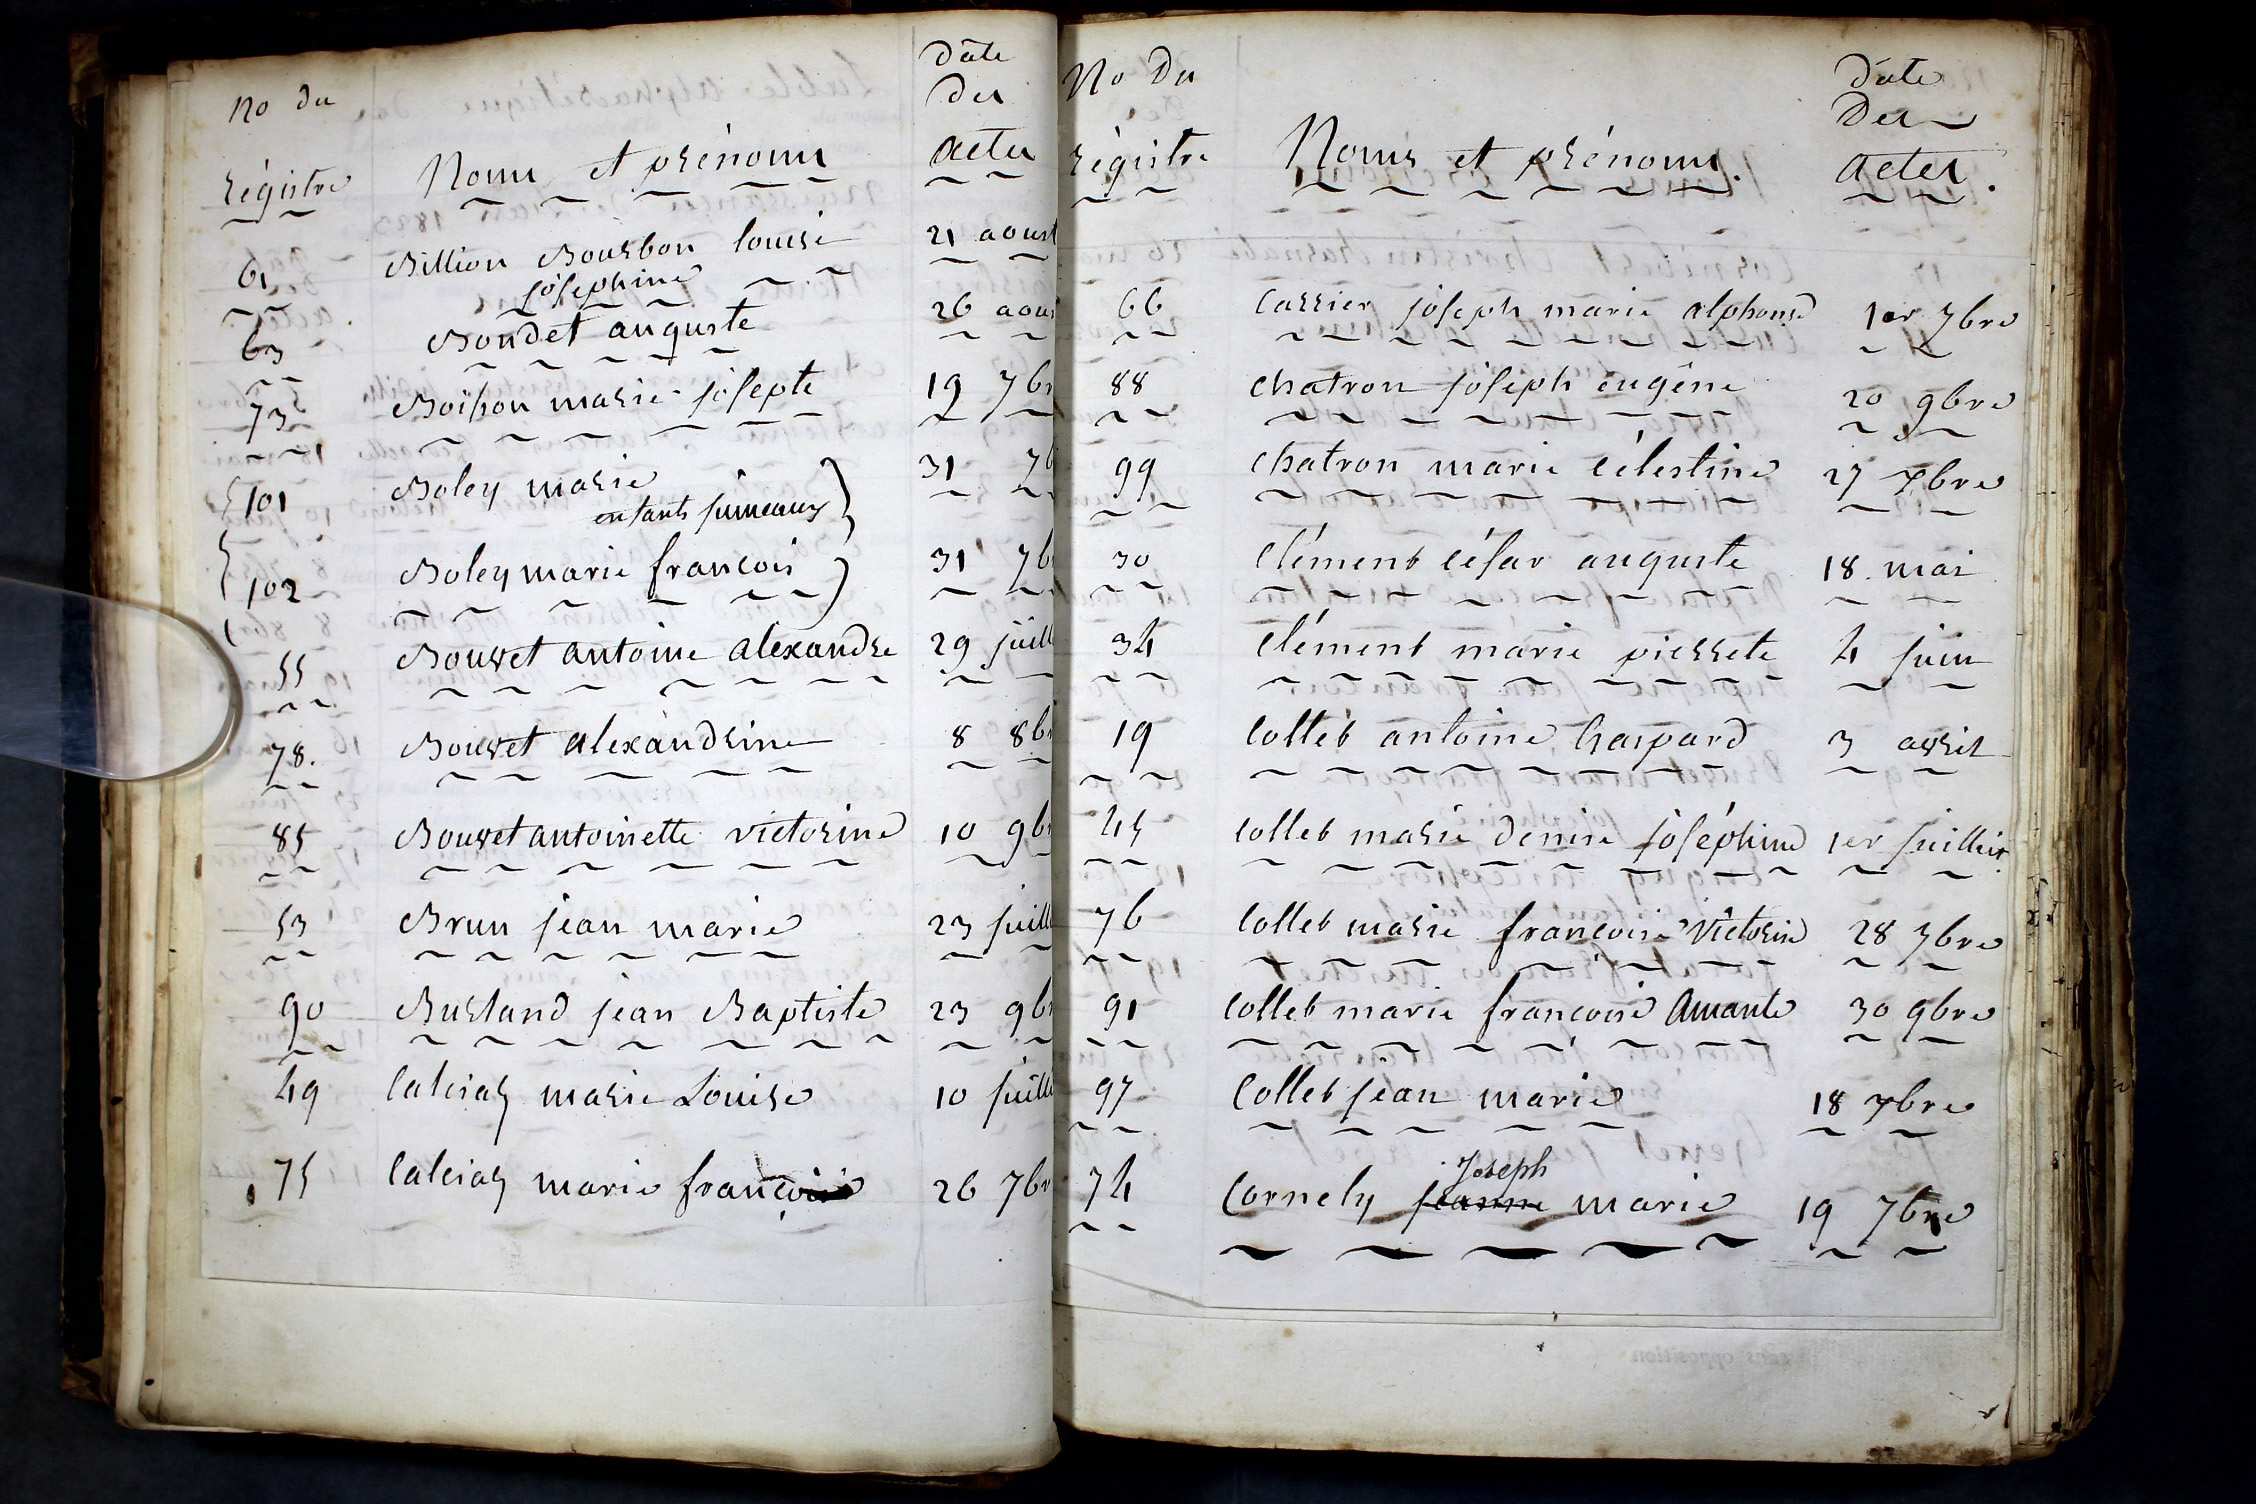 No du
Date
Des
régistre
Noms et prénoms
actes
61
Billion Bourbon louise
21 aoust
joséphine
63
Bondet auguste
26 aous
73
Boisson marie josepte
19 7br
101
Boley marie
31 7b
enfants jumeaux
102
Boley marie françois
31 7b
55
Bouvet antoine alexandre
29 juill
78.
Bouvet alexandrine
8 8br
85
Bouvet antoinette victorine
10 9br
53
Brun jean marie
23 juill
90
Burland jean Baptiste
23 9br
49
Calciaz marie Louise
10 juill
75
Calciaz marie françois
26 7br
No Du
Date
Des
régistre
Noms et prénoms.
actes.
66
Carrier joseph marie alphonse
1er 7bre
88
Chatron joseph eugène
20 9bre
99
Chatron marie célestine
27 xbre
30
Clément césar auguste
18. mai
34
Clément marie pierrete
4 juin
19
Collet antoine Gaspard
3 avril
45
Collet marie denise joséphine
1er juillet
76
Collet marie françoise Victorine
28 7bre
91
Collet marie françoise Amante
30 9bre
97
Collet jean marie
18 xbre
Joseph
74
Cornely jeanne marie
19 7bre